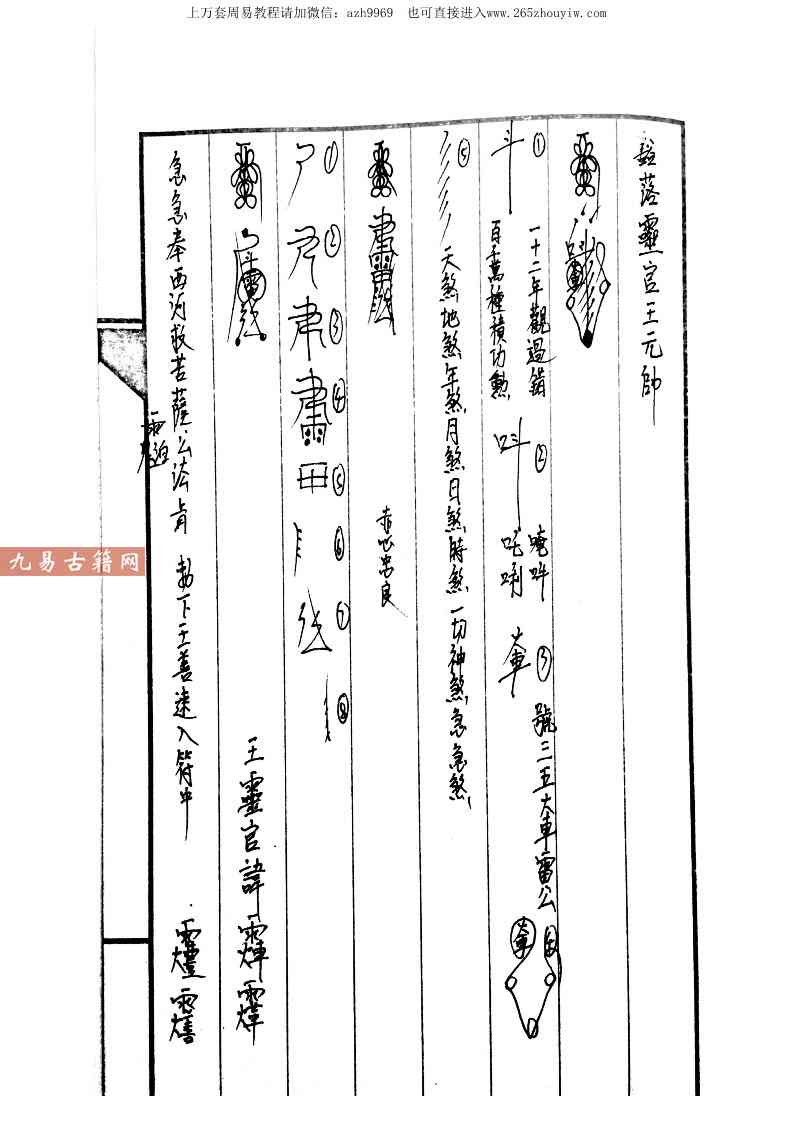 上万套周易教程请加微信：azh9969 也可直接进入www.265zhouyiw.com
豁落靈官王元帥
① 斗
一十二年觀過錯
百千萬種積功勲
② 吽
唵吽
吒唎
③
號三五大車雷公
⑤ 天煞地煞年煞月煞日煞時煞一切神煞急急煞
赤心忠良
① ② ③ ④ ⑤ ⑥ ⑦ ⑧
王靈官諱
急急奉西河救苦薩公法旨 勅下王善速入符中
九易古籍网